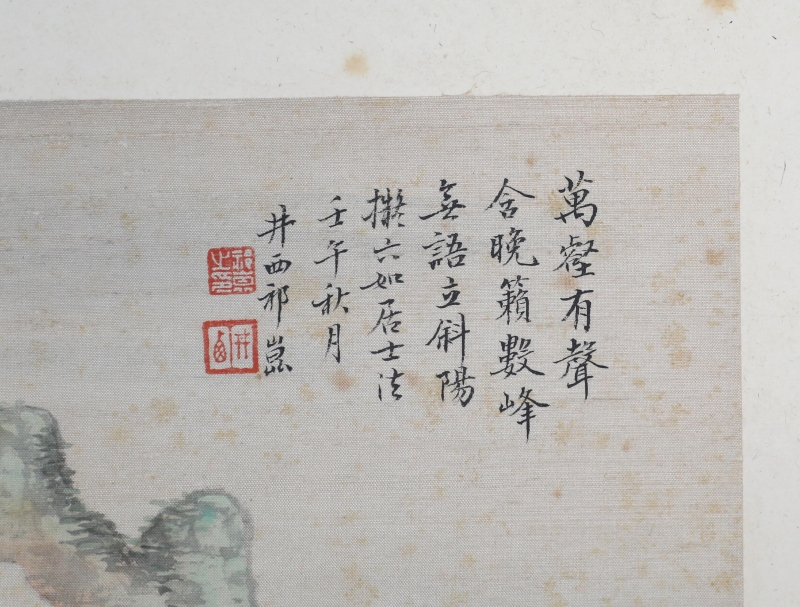 萬壑有聲
含晚籟數峰
無語立斜陽
擬六如居士法
壬午秋月
井西祁崑
祁崑之印
井西